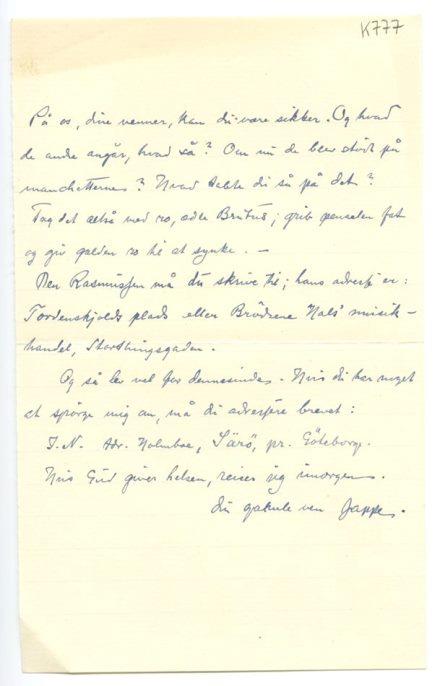 K777
På os, dine venner, kan du være sikker. Og hvad
de andre angår, hvad så? Om nu de blev stødt på
manchetterne? Hvad tabte du så på det?
Tag det altså med ro, ædle Brutus; grib penselen fat
og giv galden ro til at synke. —
Den Rasmussen må du skrive til; hans adresse er:
Tordenskjolds plads eller Brödrene Hals' musik-
handel, Storthingsgaden.
Og så lev vel for dennesinde. Hvis du har noget
at spørge mig an, må du adressere brevet:
J.N. Adr. Holmboe, Särö, pr. Göteborg.
Hvis Gud giver helsen, reiser jeg imorgen.
Din gamle ven Jappe.